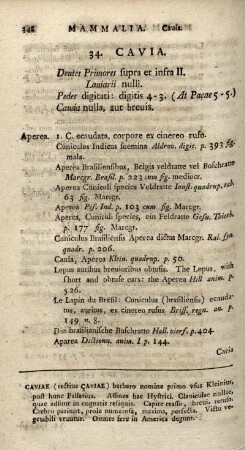 248 MAMMALIA. Cauia.
34. CAVIA.
Dentes Primores supra et infra II.
Laniarii nulli.
Pedes digitati: digitis 4-3. (At Pacae 5-5.)
Cauda nulla, aut breuis.
Aperea. 1. C. ecaudata, corpore ex cinereo rufo.
Cuniculus Indicus foemina Aldrov. digit. p. 393 fig.
mala.
Aperea Brasiliensibus, Belgis veldratte vel Boschratte
Marcgr. Brasil. p. 223 cum fig. mediocr.
Aperea Cuniculi species Veldratte Ionst. quadrup. tab.
63 fig. Marcgr.
Aperea Pis. Ind. p. 103 cum fig. Marcgr.
Aperea, Cuniculi species, ein Feldratte Gesn. Thierb.
p. 177 fig. Marcgr.
Cuniculus Brasiliensis Aperea dictus Marcgr. Rai. syn.
quadr. p. 206.
Cauia, Aperea Klein. quadrup. p. 50.
Lepus auribus breuioribus obtusis. The Lepus, with
short and obtuse ears: the Aperea Hill anim. p.
526.
Le Lapin du Bresil: Cuniculus (brasiliensis) ecauda-
tus, auritus, ex cinereo rufus Briss. regn. an. p.
149 n. 8.
Die brasilianische Buschratte Hall. vierf. p. 404.
Aparea Dictionn. anim. I p. 144.
Cauia
CAVIAE (rectius ÇAVIAE) barbaro nomine primo vsus Kleinius,
post hunc Pallasius. Affines hae Hystrici. Clauiculae nullae,
quae adsunt in cognatis reliquis. Capite crasso, breui, retuso.
Crebro pariunt, prole numerosa, maxima, perfecta. Victu ve-
getabili vivunt. Omnes fere in America degunt.